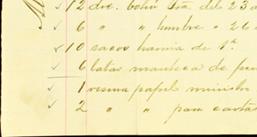 12 doc. del 23
6 " " lumbre " 26
10 sacos harina de 1ª
6 latas manteca de
1 resma papel ministro
2 " " para cartas